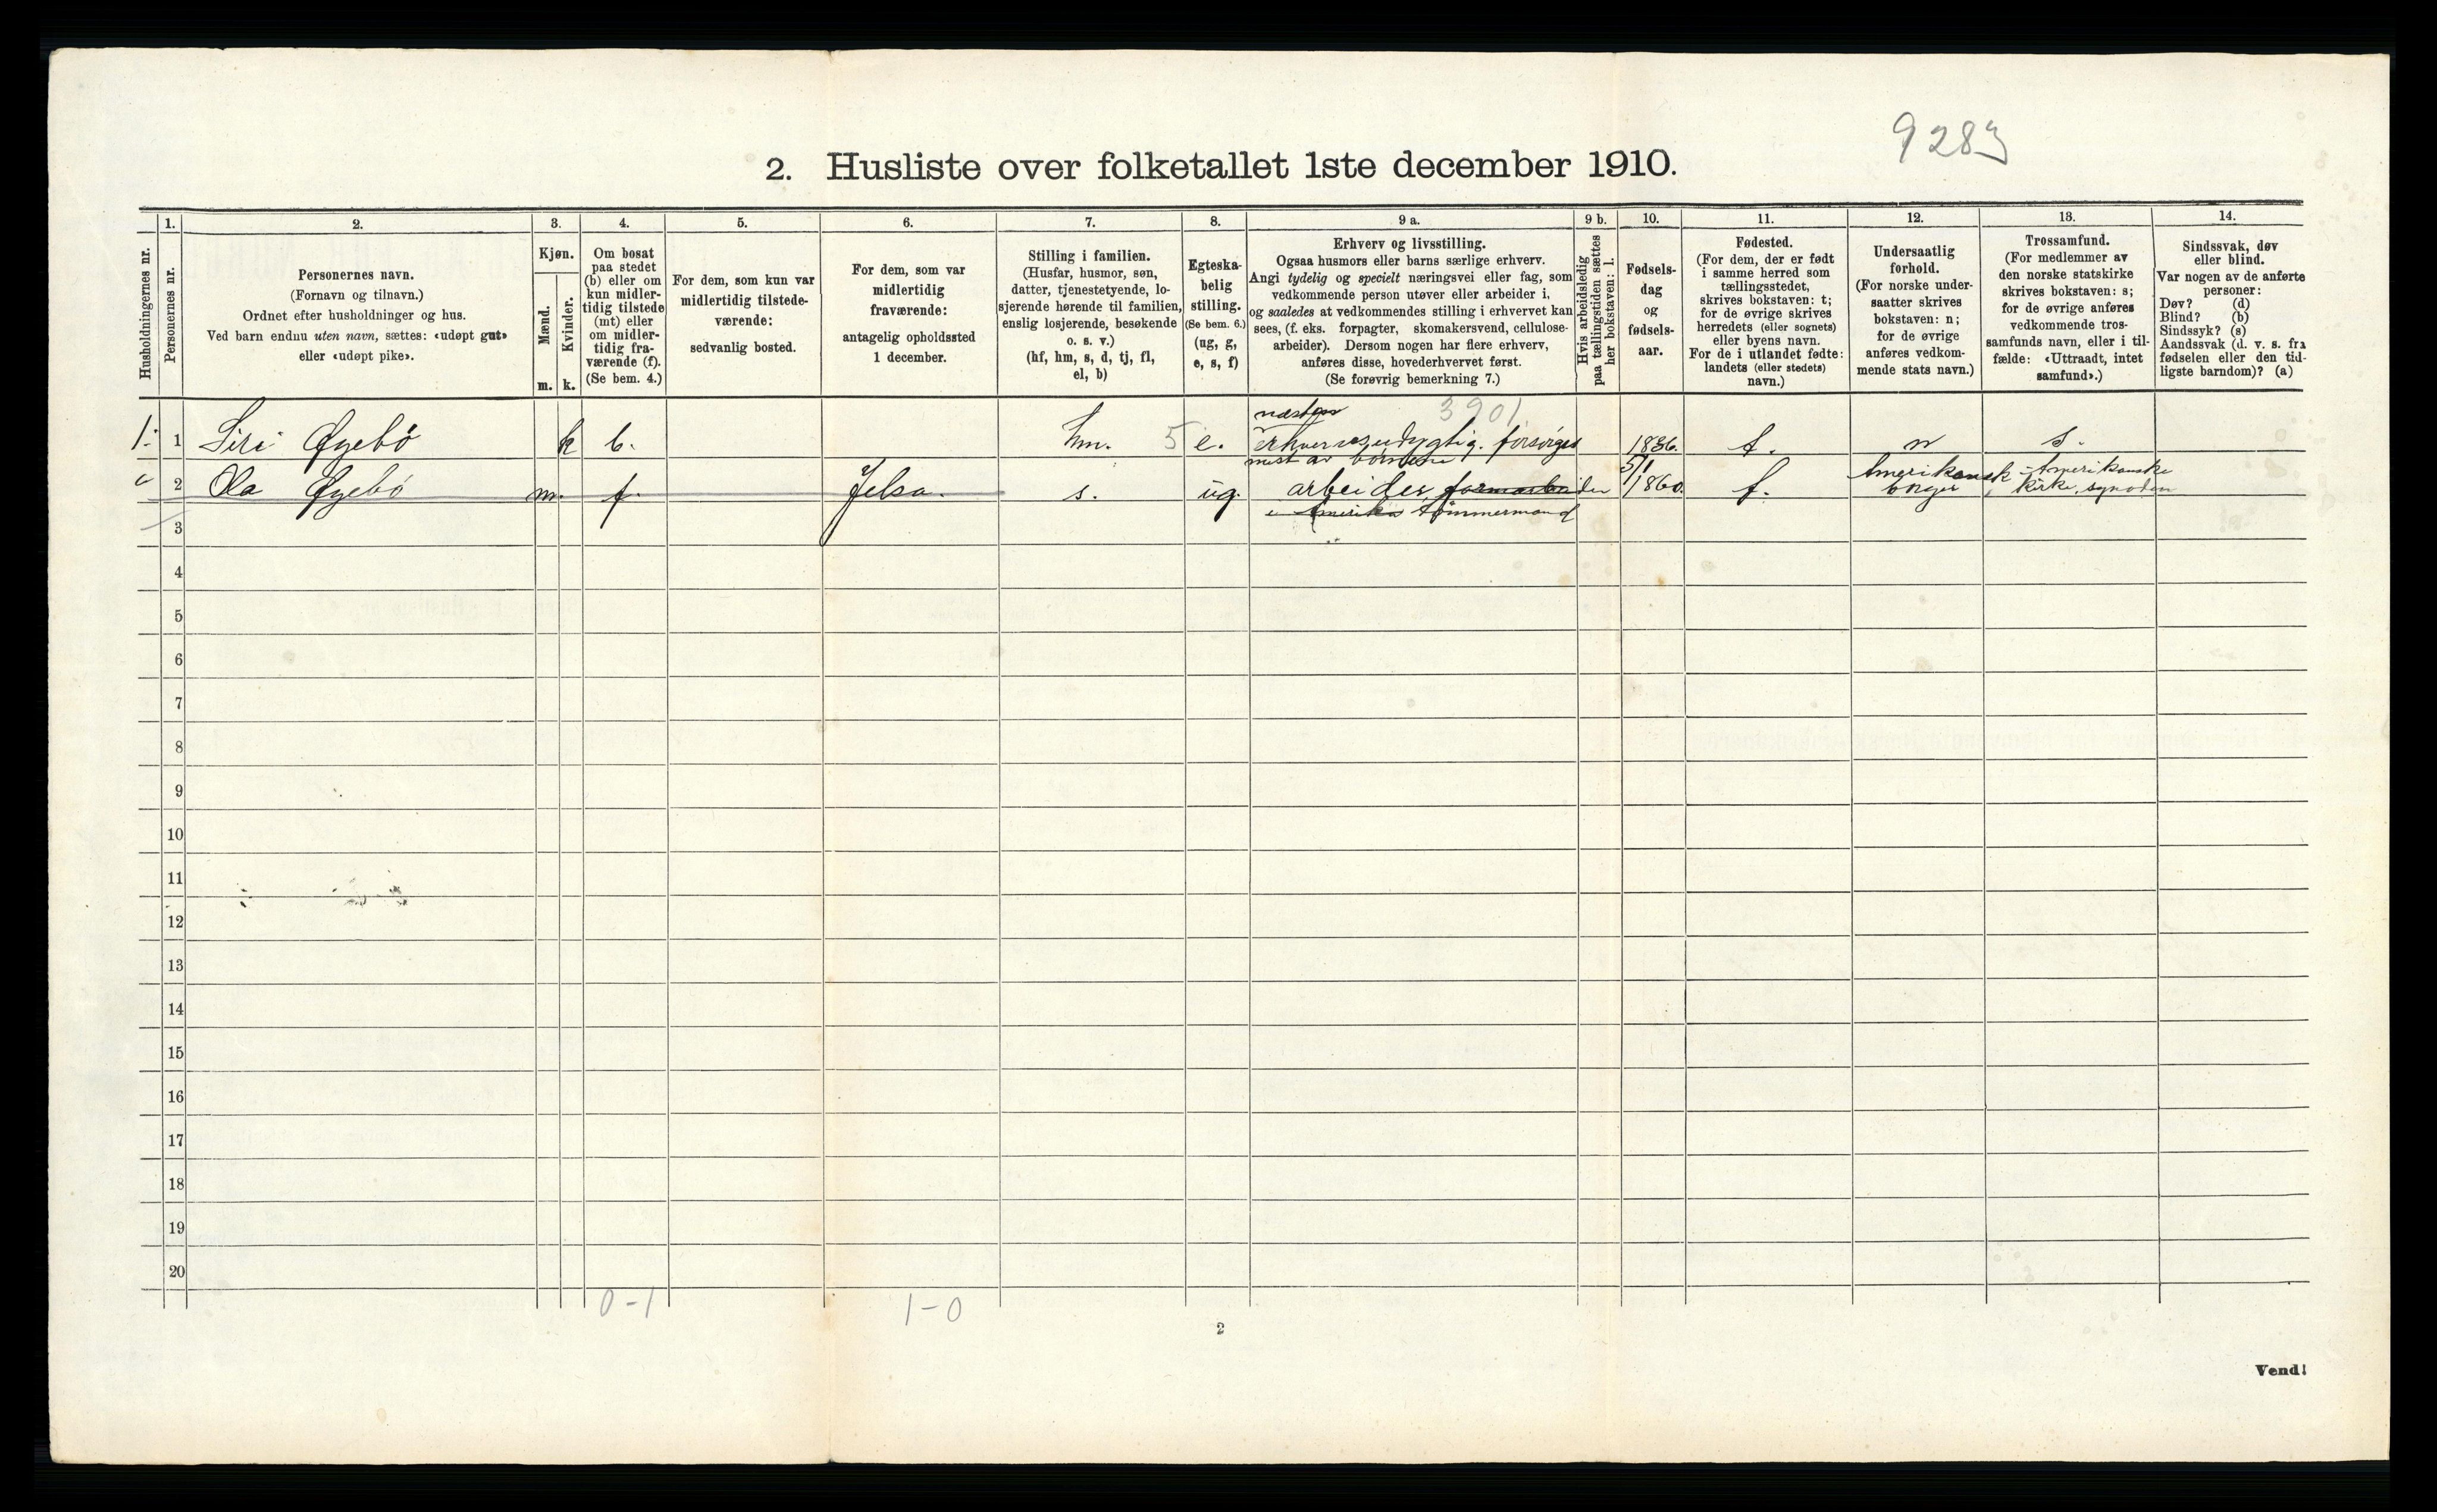 9283
2. Husliste over folketallet 1ste december 1910.
Husholdningernes nr.
1.
Personernes nr.
2.
Personernes navn.
(Fornavn og tilnavn.)
Ordnet efter husholdninger og hus.
Ved barn endnu uten navn, sættes: «udøpt gut»
eller «udøpt pike».
3.
Kjøn.
Mænd.
Kvinder.
m. k.
4.
Om bosat
paa stedet
(b) eller om
kun midler-
tidig tilstede
(mt) eller
om midler-
tidig fra-
værende (f).
(Se bem. 4.)
5.
For dem, som kun var
midlertidig tilstede-
værende:
sedvanlig bosted.
6.
For dem, som var
midlertidig
fraværende:
antagelig opholdssted
1 december.
7.
Stilling i familien.
(Husfar, husmor, søn,
datter, tjenestetyende, lo-
sjerende hørende til familien,
enslig losjerende, besøkende
o. s. v.)
(hf, hm, s, d, tj, fl,
el, b)
8.
Egteska-
belig
stilling.
(Se bem. 6.)
(ug, g,
e, s, f)
9 a.
Erhverv og livsstilling.
Ogsaa husmors eller barns særlige erhverv.
Angi tydelig og specielt næringsvei eller fag, som
vedkommende person utøver eller arbeider i,
og saaledes at vedkommendes stilling i erhvervet kan
sees, (f. eks. forpagter, skomakersvend, cellulose-
arbeider). Dersom nogen har flere erhverv,
anføres disse, hovederhvervet først.
(Se forøvrig bemerkning 7.)
9 b.
Hvis arbeidsledig
paa tællingstiden sættes
her bokstaven: l.
10.
Fødsels-
dag
og
fødsels-
aar.
11.
Fødested.
(For dem, der er født
i samme herred som
tællingsstedet,
skrives bokstaven: t;
for de øvrige skrives
herredets (eller sognets)
eller byens navn.
For de i utlandet fødte:
landets (eller stedets)
navn.)
12.
Undersaatlig
forhold.
(For norske under-
saatter skrives
bokstaven: n;
for de øvrige
anføres vedkom-
mende stats navn.)
13.
Trossamfund.
(For medlemmer av
den norske statskirke
skrives bokstaven: s;
for de øvrige anføres
vedkommende tros-
samfunds navn, eller i til-
fælde: «Uttraadt, intet
samfund».)
14.
Sindssvak, døv
eller blind.
Var nogen av de anførte
personer:
Døv? (d)
Blind? (b)
Sindssyk? (s)
Aandssvak (d. v. s. fra
fødselen eller den tid-
ligste barndom)? (a)
næsten 3901
1. 1 Siri Øyebö k b. hm. 5 e. erhvervsudygtig. forsørges 1836. t. n s.
mest av børnene
2 Ola Øyebö m. f. Jelsa. s. ug. arbeider farmarbeider 5/1 1860. t. Amerikansk borger Amerikanske kirke, synoden
i Amerika tømmermand
3
4
5
6
7
8
9
10
11
12
13
14
15
16
17
18
19
20
0-1 1-0
2
Vend!